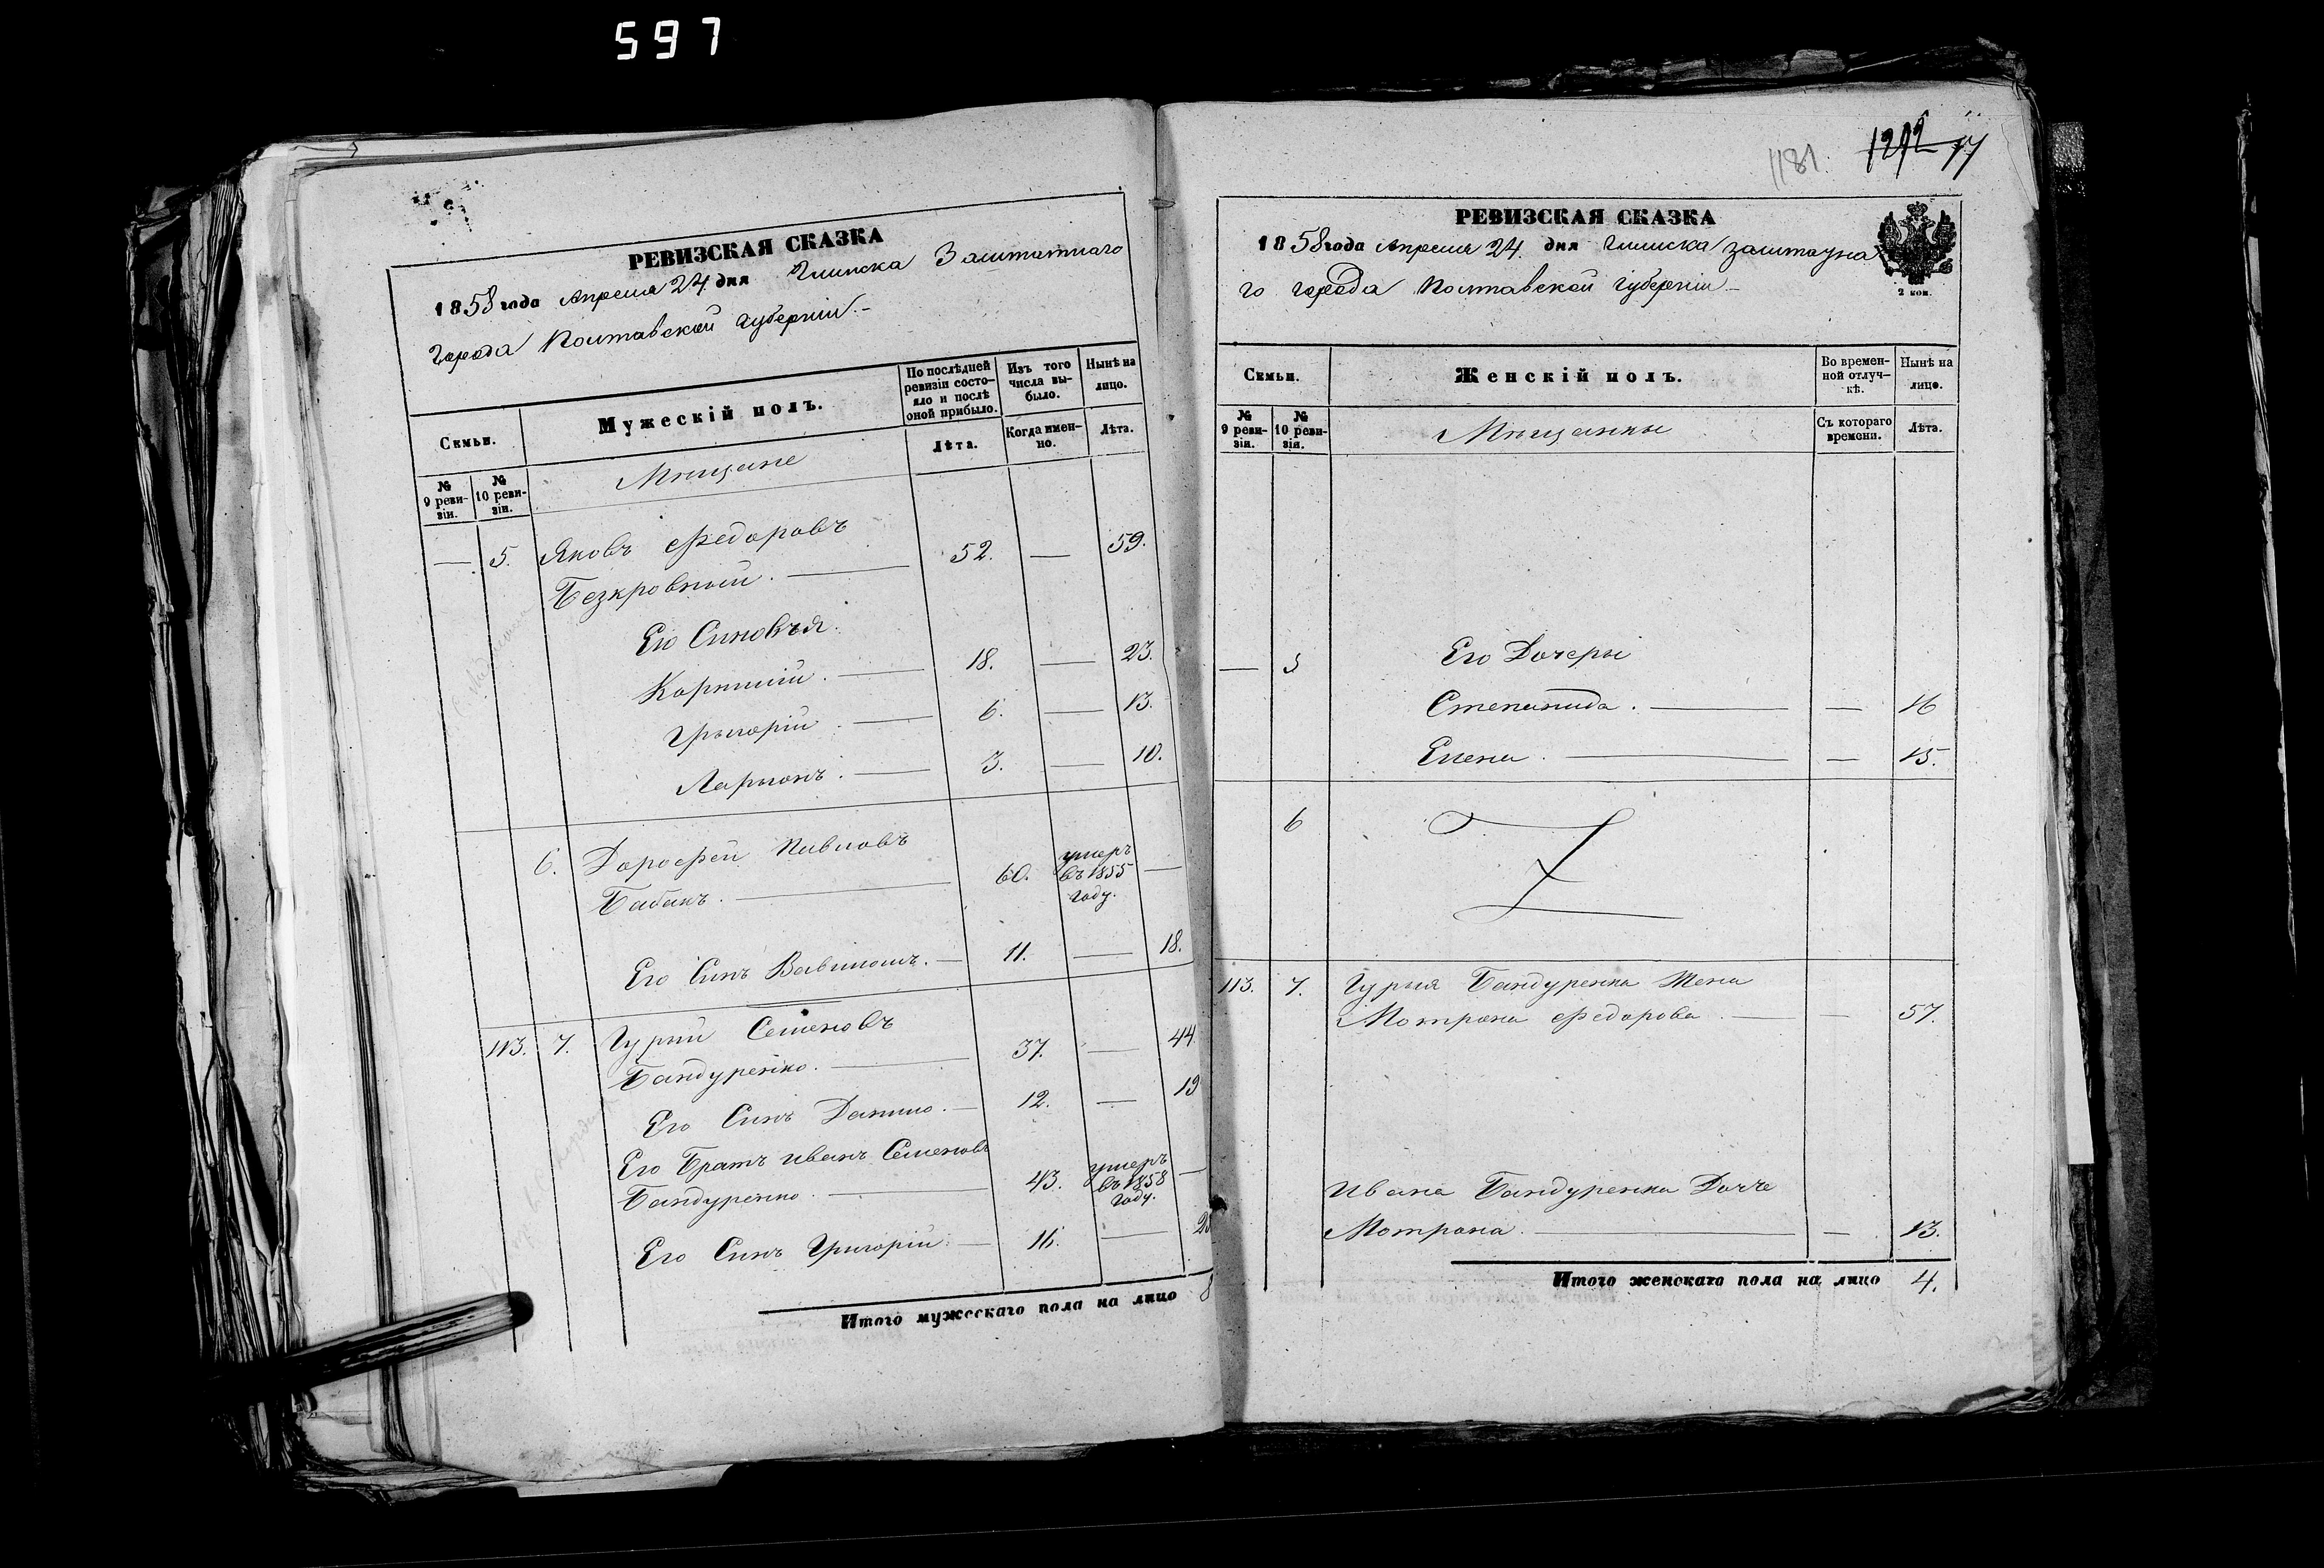 597
РЕВИЗСКАЯ СКАЗКА
1858 года Апреля 24 дня Глинска Заштатнаго
города Полтавской губерніи.-
Семьи.
Мужескій полъ.
По послѣдней ревизіи состояло и послѣ оной прибыло.
Изъ того числа выбыло.
Нынѣ на лицо.
№ 9 ревизіи.
№ 10 ревизіи.
Мѣщане
Лѣта.
Когда именно.
Лѣта.
— 5. Яковъ Федоровъ
Безкровный. — 52. — 59.
Его Сыновья.
Корнилій. — 18. — 23.
Грыгорій — 6. — 13.
Ларыонъ. — 3. — 10.
6. Дорофей Павловъ
Бабакъ. — 60. умеръ въ 1855 году. —
Его Сынъ — 11. — 18.
113. 7. Гурий Семеновъ
Бандуренко. — 37. — 44
Его Сынъ Данило. — 12. — 19
Его Братъ Иванъ Семеновъ
Бандуренко — 43. умеръ въ 1858 году. —
Его Сынъ Григорій — 16. —
Итого мужескаго пола на лицо 8
1181. 1292 77
РЕВИЗСКАЯ СКАЗКА
1858 года Апреля 24. дня Глинска заштатна
го города Полтавской губерніи-
2 коп.
Семьи.
Женскій полъ.
Во временной отлучкѣ.
Нынѣ на лицо.
№ 9 ревизіи.
№ 10 ревизіи.
Мѣщанки
Съ котораго времени.
Лѣта.
— 5 Его Дочери
Степанида. — — 16
Елена. — — 15.
6
113. 7. Гурыя Бандуренка Жена
Мотрона Федорова. — — 57.
Ивана Бандуренка Дочь
Мотрона. — — 13.
Итого женскаго пола на лицо 4.